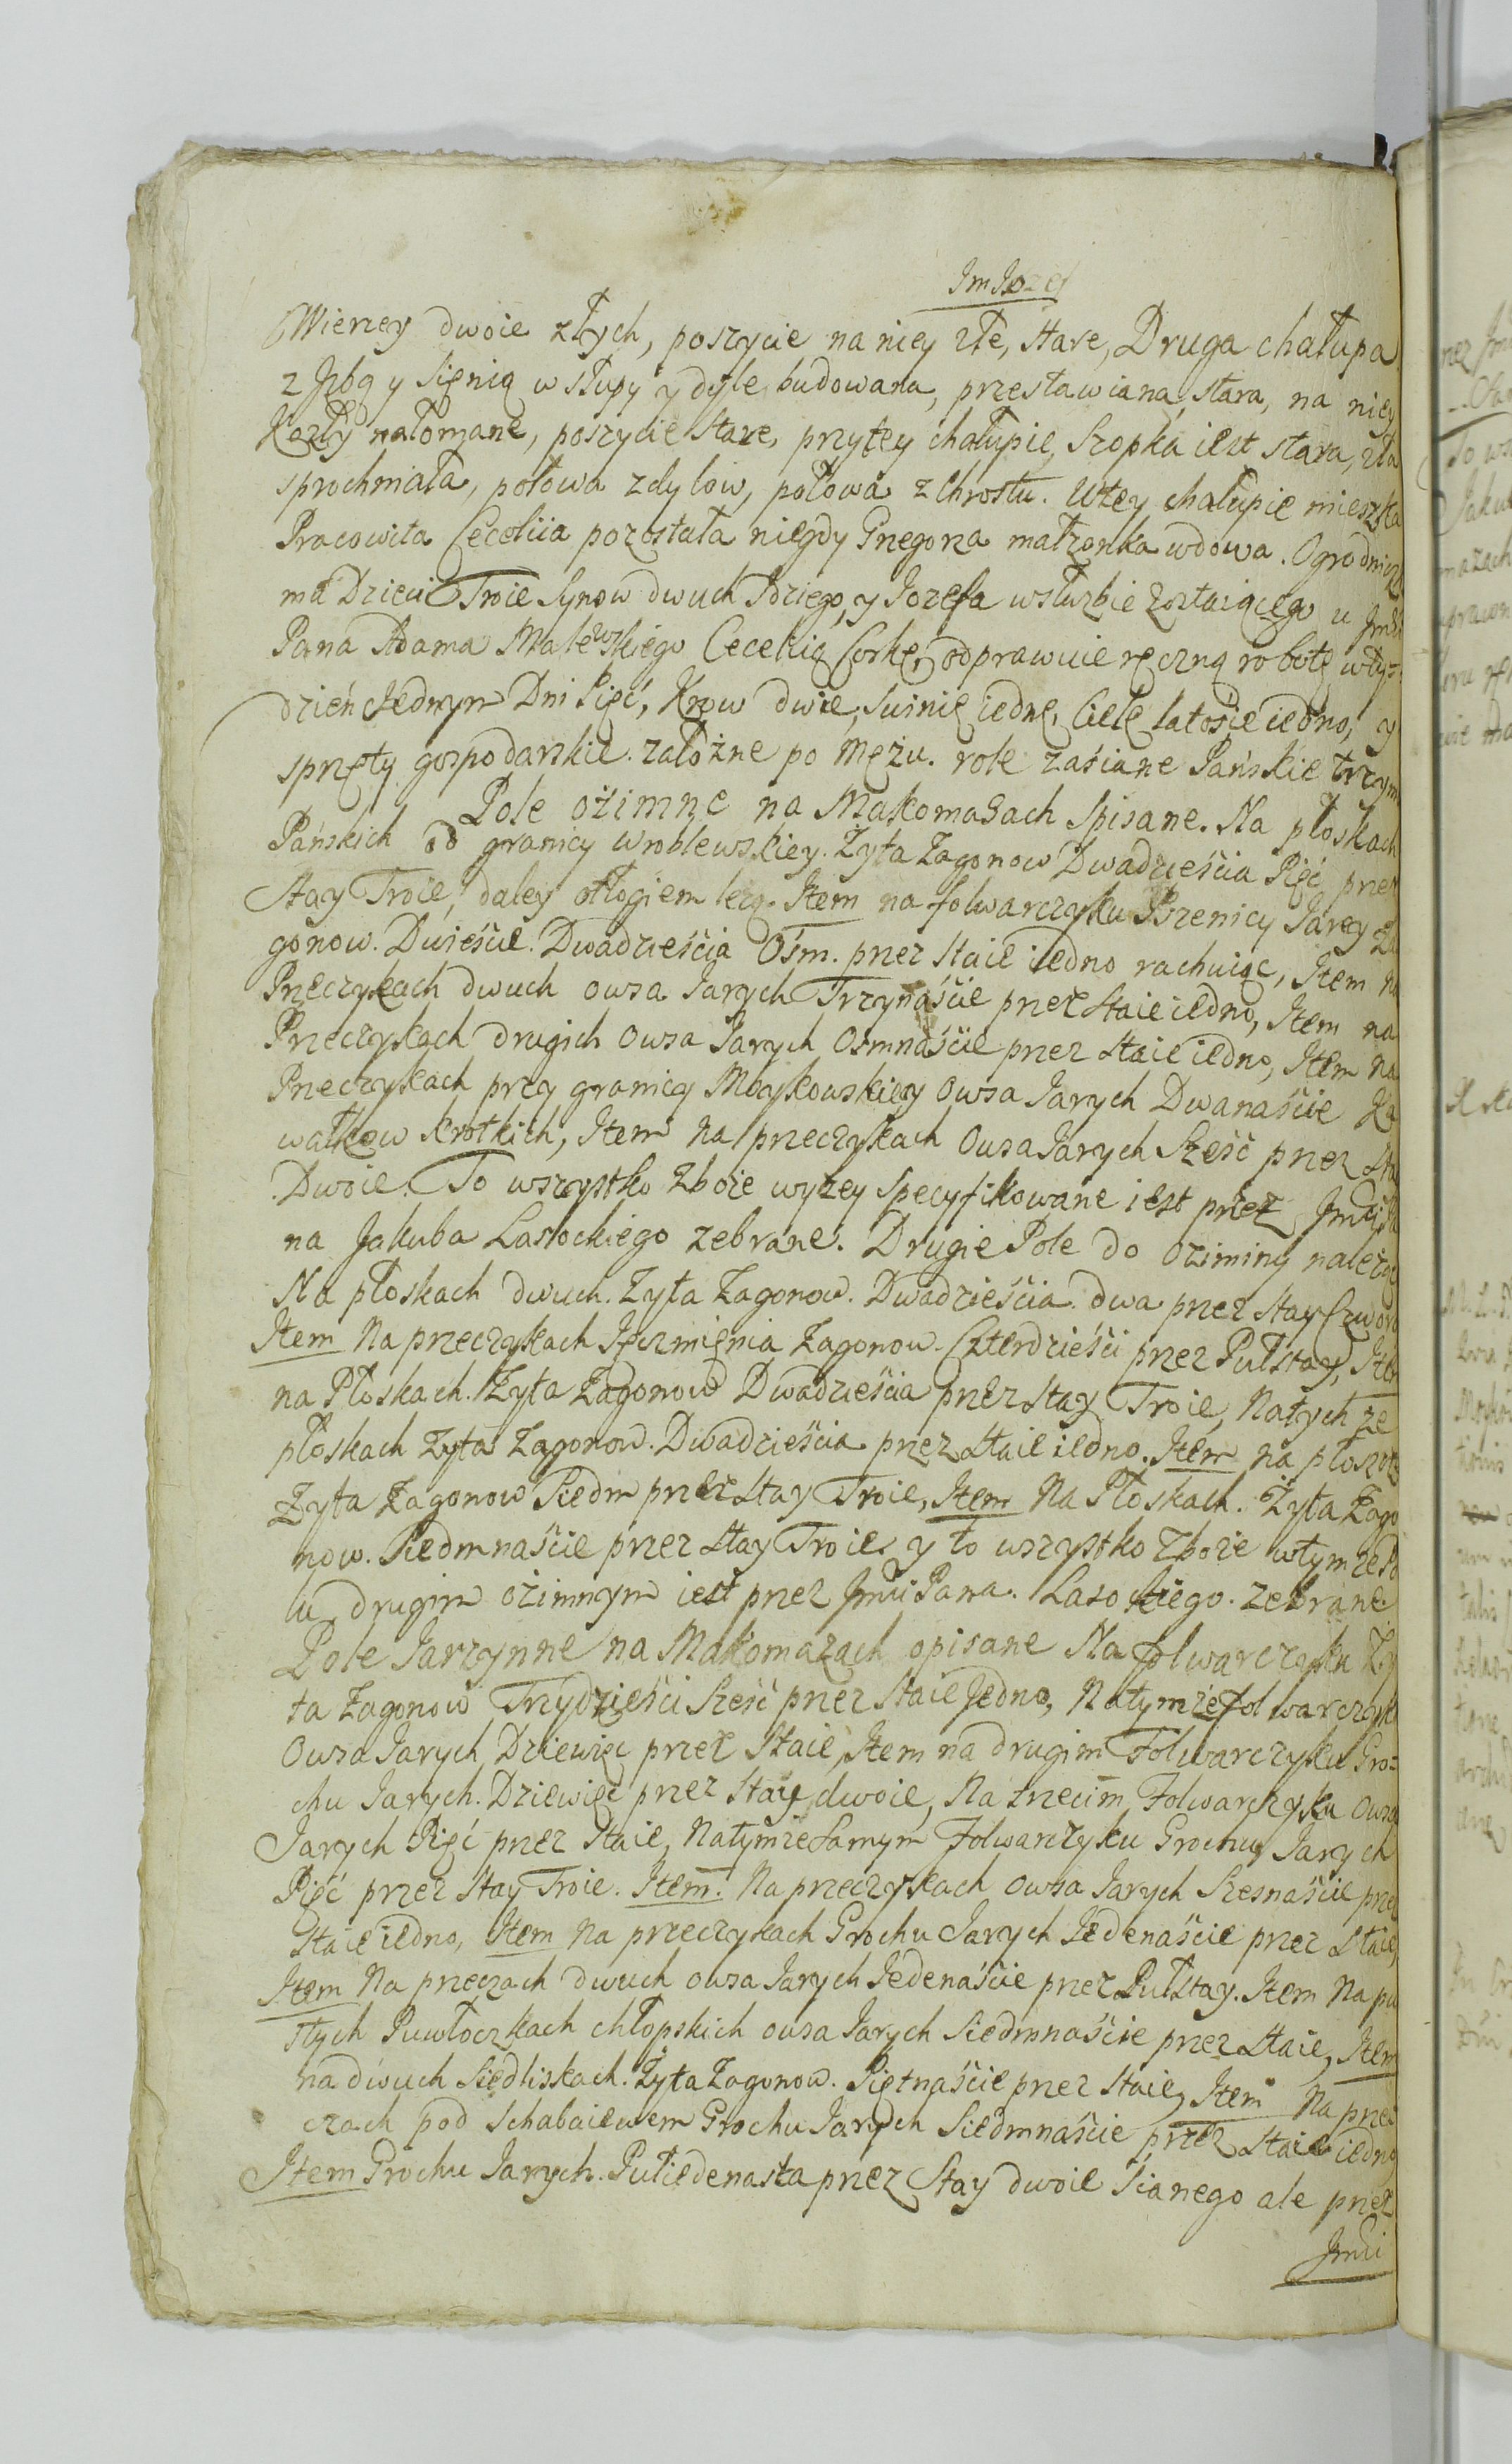 Im Jozef
Wierzey dwoie złych, poszycie na niey złe, stare, Druga chałupa
z Jzbą y Sięnią w słupy y dyle budowana, przestawiana, stara, na niey
Kozły nałomane, poszycie stare, przytey chałupie, Szopka iest stara, zła
sprochniała, połowa zdylow, połowa z Chrostu. Wtey chałupie mieszka
Pracowita Ceceliia pozostała niegdy Grzegorza małzonka wdowa. Ogrodnicz
ma Dzieci Troie Synow dwuch Idziego, y Jozefa wsłuzbie zostaiącego u Jmci
Pana Adama Malewskiego Cecelią Corkę, odprawuie ręczną robotę wty=
dzień Jednym Dni Pięć, Krow dwie, Swinię iednę, Ciele latosie iedno, y
sprzęty gospodarskie załozne po Mężu. role zaśiane Pańskie trzym
Pole oźimne na Makomazach Spisane. Na płoskach
Pańskich od granicy Wroblewskiey. Zyta Zagonow Dwadzieścia Pięć przez
Stay Troie, daley odłogiem lezą. Item na folwarczyku Pszenicy Jarey Za
gonow. Dwieście. Dwadzieścia Ośm. przez Staie iedno rachuiąc, Item na
Przeczykach dwuch owsa Jarych Trzynaście przez Staie iedno, Item na
Przeczykach drugich Owsa Jarych Osmnaście przez Staie iedno, Item na
Przeczykach przy granicy Mbykowskiey Owsa Jarych Dwanaście Ka
wałkow krotkich, Item na przeczykach Owsa Jarych Sześć przez Sta
Dwoie. To wszystko Zboze wyzey Specyfikowane iest przez Jmci Pa
na Jakuba Lasockiego zebrane. Drugie Pole do oziminy nalezące
Na płoskach dwuch. Zyta Zagonow. Dwadzieścia dwa przez Stay Czworo
Item Na przeczykach Jęczmięnia Zagonow. Czterdzieści przez Puł Stay, Item
na Płoskach. Zyta Zagonow Dwadzieścia przez Stay Troie, Natych ze
płoskach Zyta Zagonow. Dwadzieścia przez Staie iedno. Item na płoszce
Zyta Zagonow Siedm przez Stay Troie, Item Na Płoskach. Zyta Zago
now. Siedmnaście przez Stay Troie, y to wszystko Zboze wtym ze Po
lu drugim oźimnym iest przez Jmci Pana. Lasockiego. zebrane
Pole Jarzynne na Makomazach opisane Na folwarczyku Zy
ta Zagonow Trzydzieści Sześć przez Staie Jedno, Natymze fol warczyku
Owsa Jarych Dziewięc przez Staie, Item na drugim Folwarczyku Gro=
chu Jarych. Dziewięc przez Stay dwoie, Na trzecim Folwarczyku Owsa
Jarych Pięć przez Staie, Natymze Samym Folwarczyku Grochu Jarych
Pięć przez Stay Troie. Item. Na przeczykach owsa Jarych Szesnaście przez
Staie iedno, Item Na przeczykach Grochu Jarych Jedenaście przez Staie,
Item Na przeczach dwuch owsa Jarych Jedenaście przez Puł Stay. Item Na pu
stych Puwłoczkach chłopskich owsa Jarych Siedmnaście przez Staie, Item
na dwuch Siedliskach. Zyta Zagonow. Piętnaście przez Staie, Item Na prze
czach pod Schabaiewem Grochu Jarych Siedmnaście przez Staie iedno
Item Grochu Jarych. Pułiedenasta przez Stay dwoie Sianego ale przez
Jmci